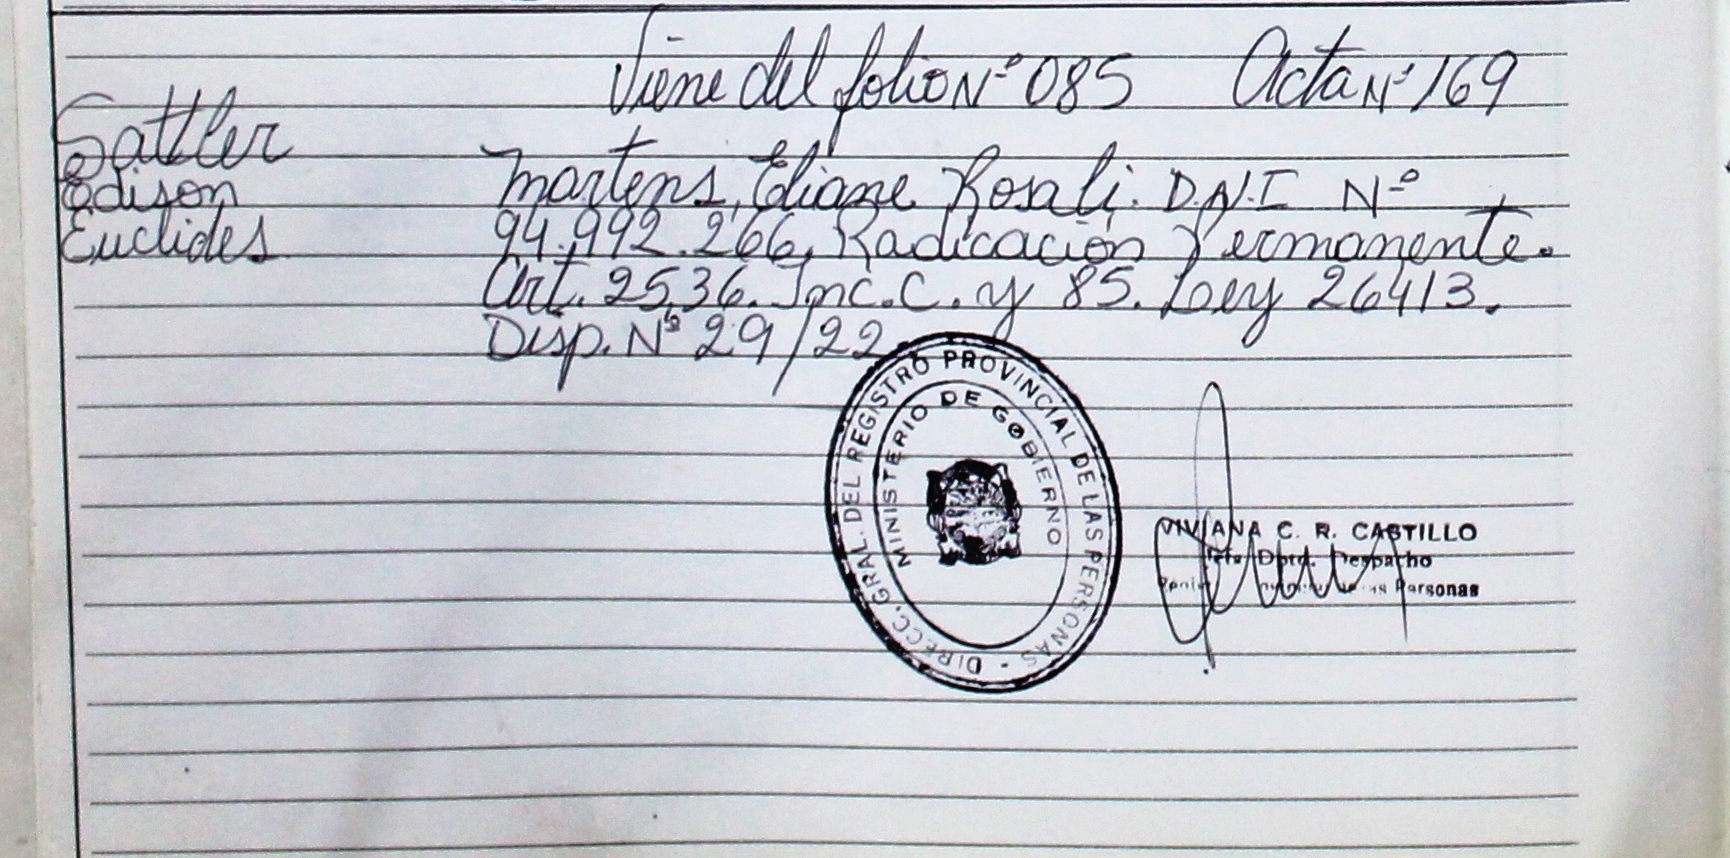 Viene del folio Nº 085 Acta Nº 169
Sattler
Edison
Euclides
Martens, Eliane Rosali. D.N.I Nº
94.992.266, Radicación Permanente.
Art. 25,36. Inc.C. y 85. Ley 26413.
Disp. Nº 29/22.
DIRECC. GRAL. DEL REGISTRO PROVINCIAL DE LAS PERSONAS -
MINISTERIO DE GOBIERNO
VIVIANA C. R. CASTILLO
Jefa Dpto. Despacho
Personas